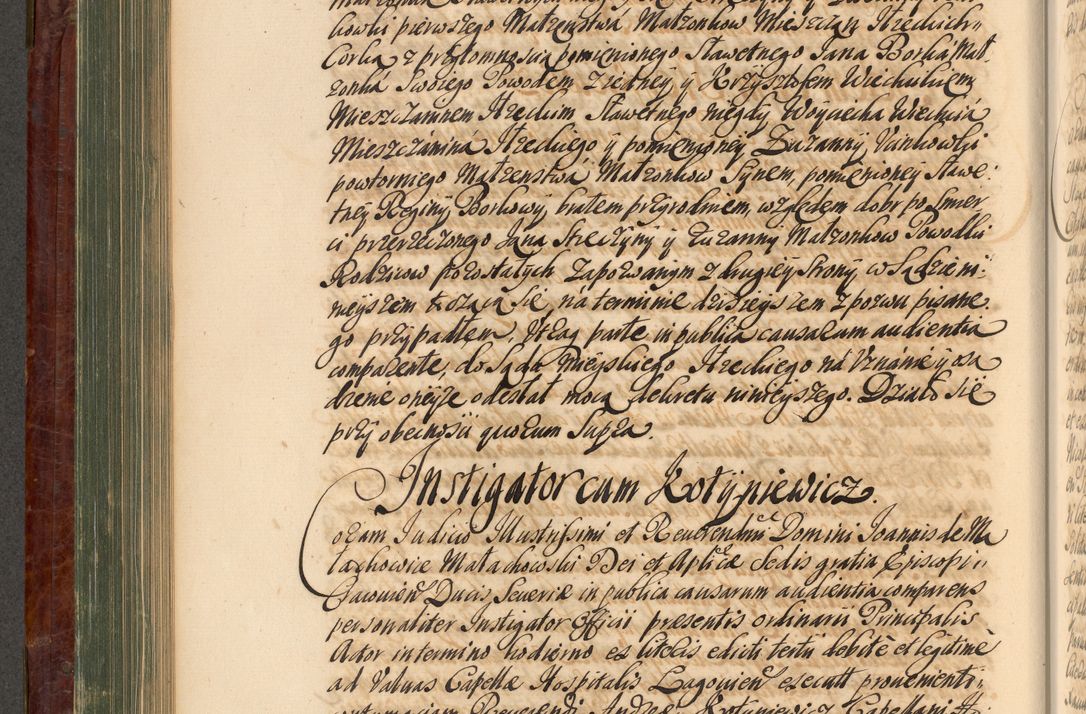 kowski pierwszego Małżenstwa Małżonkow Mieszczan Iłzeckich
Corką z przytomnoscią pomienionego Sławetnego Jana Borka Mał
żonka Swoiego Powodem z iedney y Krzysztofem Wiechuckiem
Mieszczaninem Iłzeckim Sławetnego niegdy Woyciecha Wiechucia
Mieszczánina Iłzeckiego y pomienioney Zuzanny
powtornego Małżenstwá Małżonkow Synem, pomienioney Sławe:
tney Reginy Borkowy, bratem przyrodniem, względem dobr po Smier
ci przerzeczonego Jana y Zuzanny Małżonkow Powodki
Rodzicow pozostałych Zapozwanym z drugiey Strony, w Sądzie ni:
nieyszem toczącą się, ná terminie dzisieyszem z pozwu pisane
go przypadłem, Vtraq parte, in publica causarum audientia
comparente, do Sądu Mieyskiego Iłzeckiego ná Vznánie y osa
dzenie oneyże odesłał mocą dekretu ninieyszego. Działo się
przy obecnosci quorum Supra.
Instigator cum Kotyniewicz.
oram Judicio Illustrissimi et Reuerendmi Domini Joannis de Ma
łachowice Małachowski Dei et Aplicæ Sedis gratia Episcopi
Cracouien Ducis Seueriæ in publica causarum audientia comparens
personaliter Instigator Officii præsentis ordinarii Principalis
Actor in termino hodierno ex literis edicti tertii debitè et legitimè
ad Valuas Capellæ Hospitalis Lagouien execut prouenienti,
contumaciam Reuerendi Andreæ Kotyniewicz Capellani